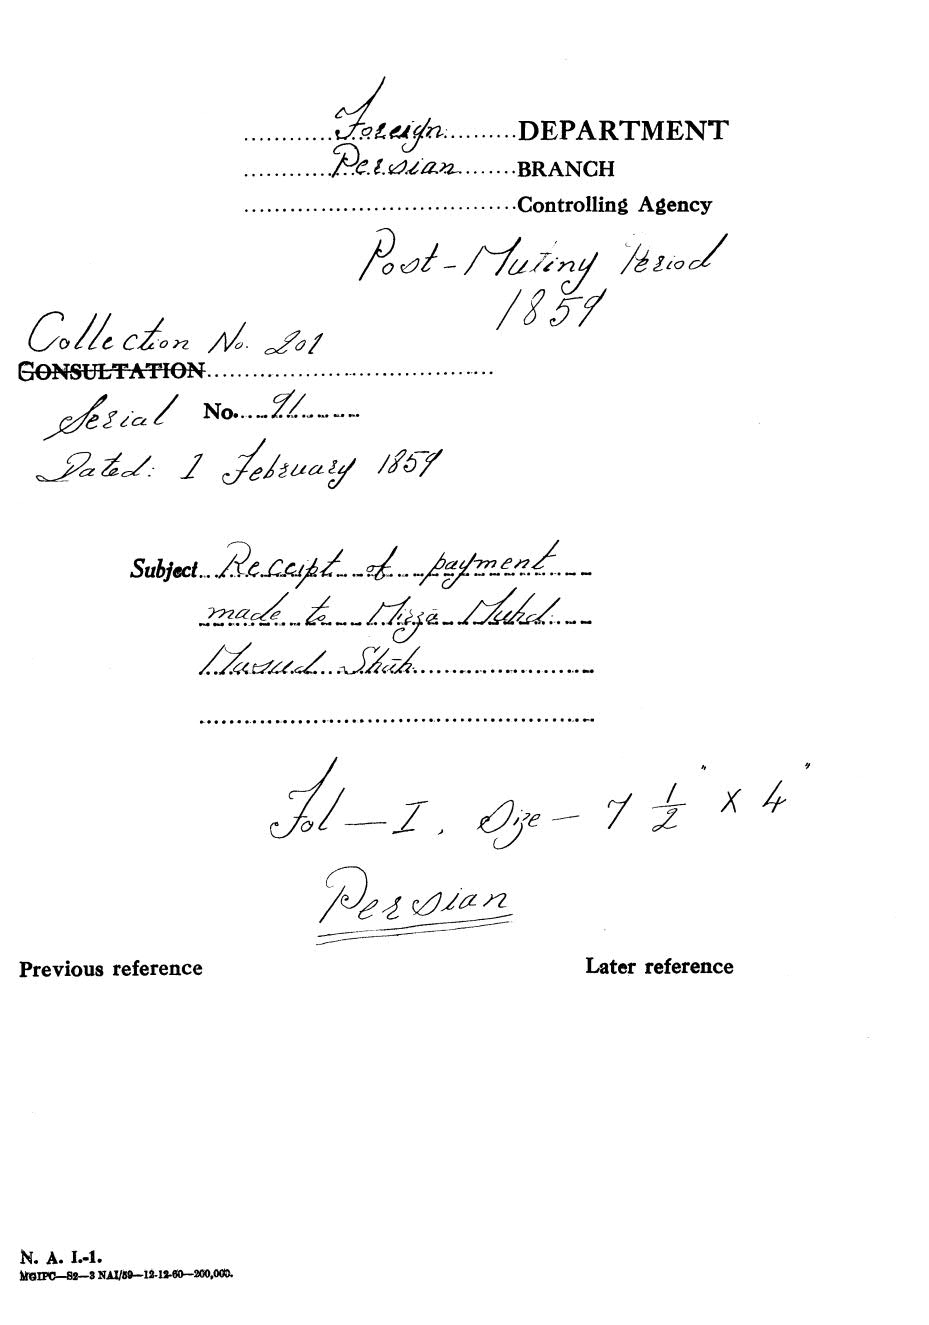 Foreign DEPARTMENT
Persian BRANCH
Controlling Agency
Post-Mutiny Period
1859
Collection No. 201
CONSULTATION
Serial No. 91
Dated: 1 February 1859
Subject Receipt of payment
made to Mirza Muhd.
Masud Shāh
Fol — I, Size — 7 1/2" X 4"
Persian
Previous reference Later reference
N. A. I.-1.
MGIPC—S2—3 NAI/59—12-12-60—200,000.